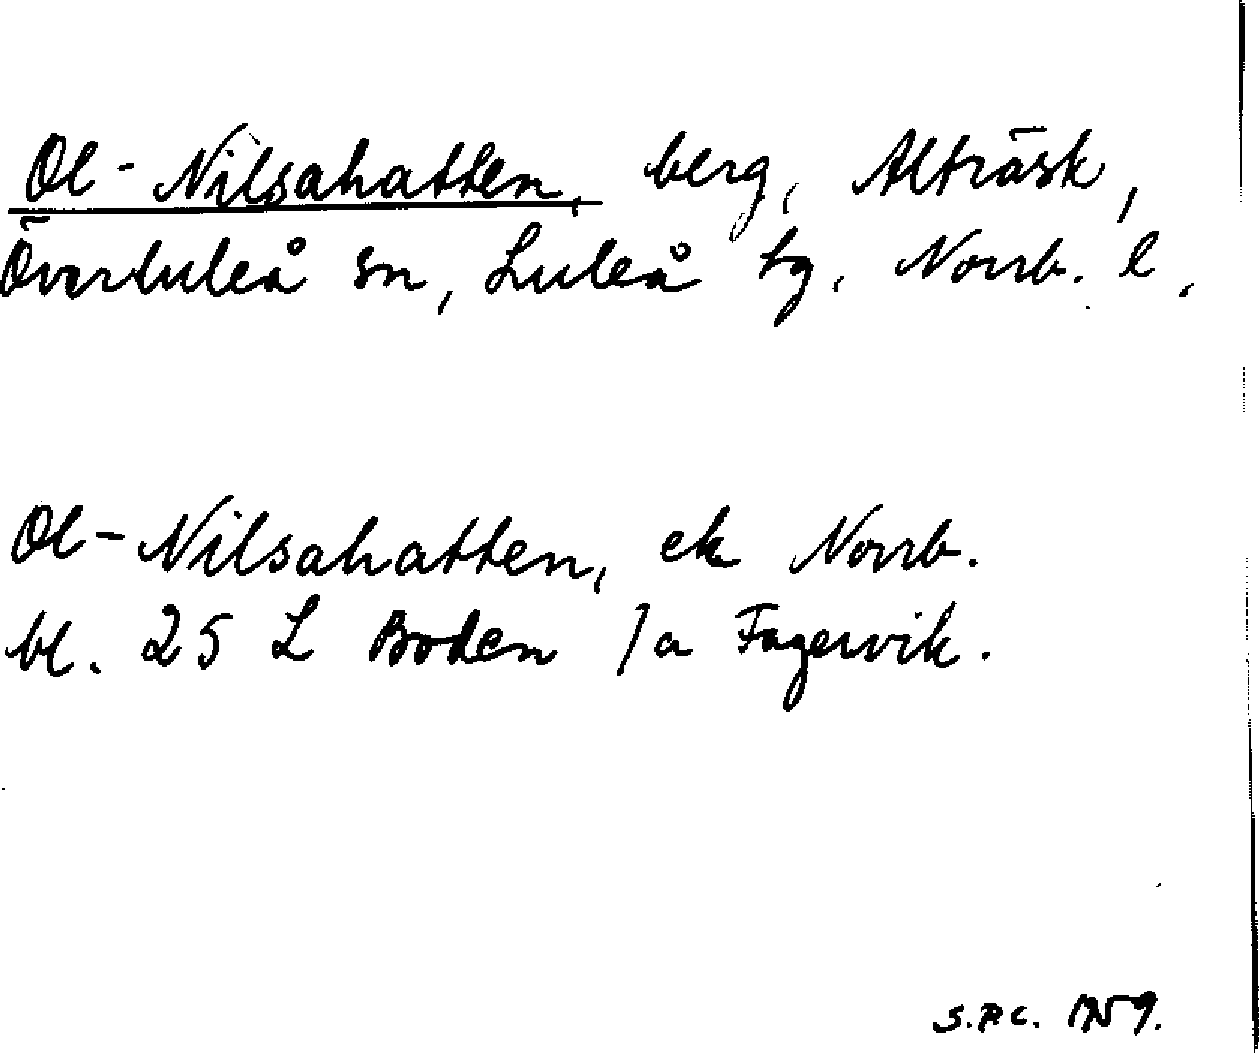 Ol-Nilsahatten, berg, Alträsk,
Överluleå sn, Luleå tg, Norrb. l,
Ol-Nilsahatten, ek Norrb.
bl. 25 L Boden /a Fagervik.
S.P.C.